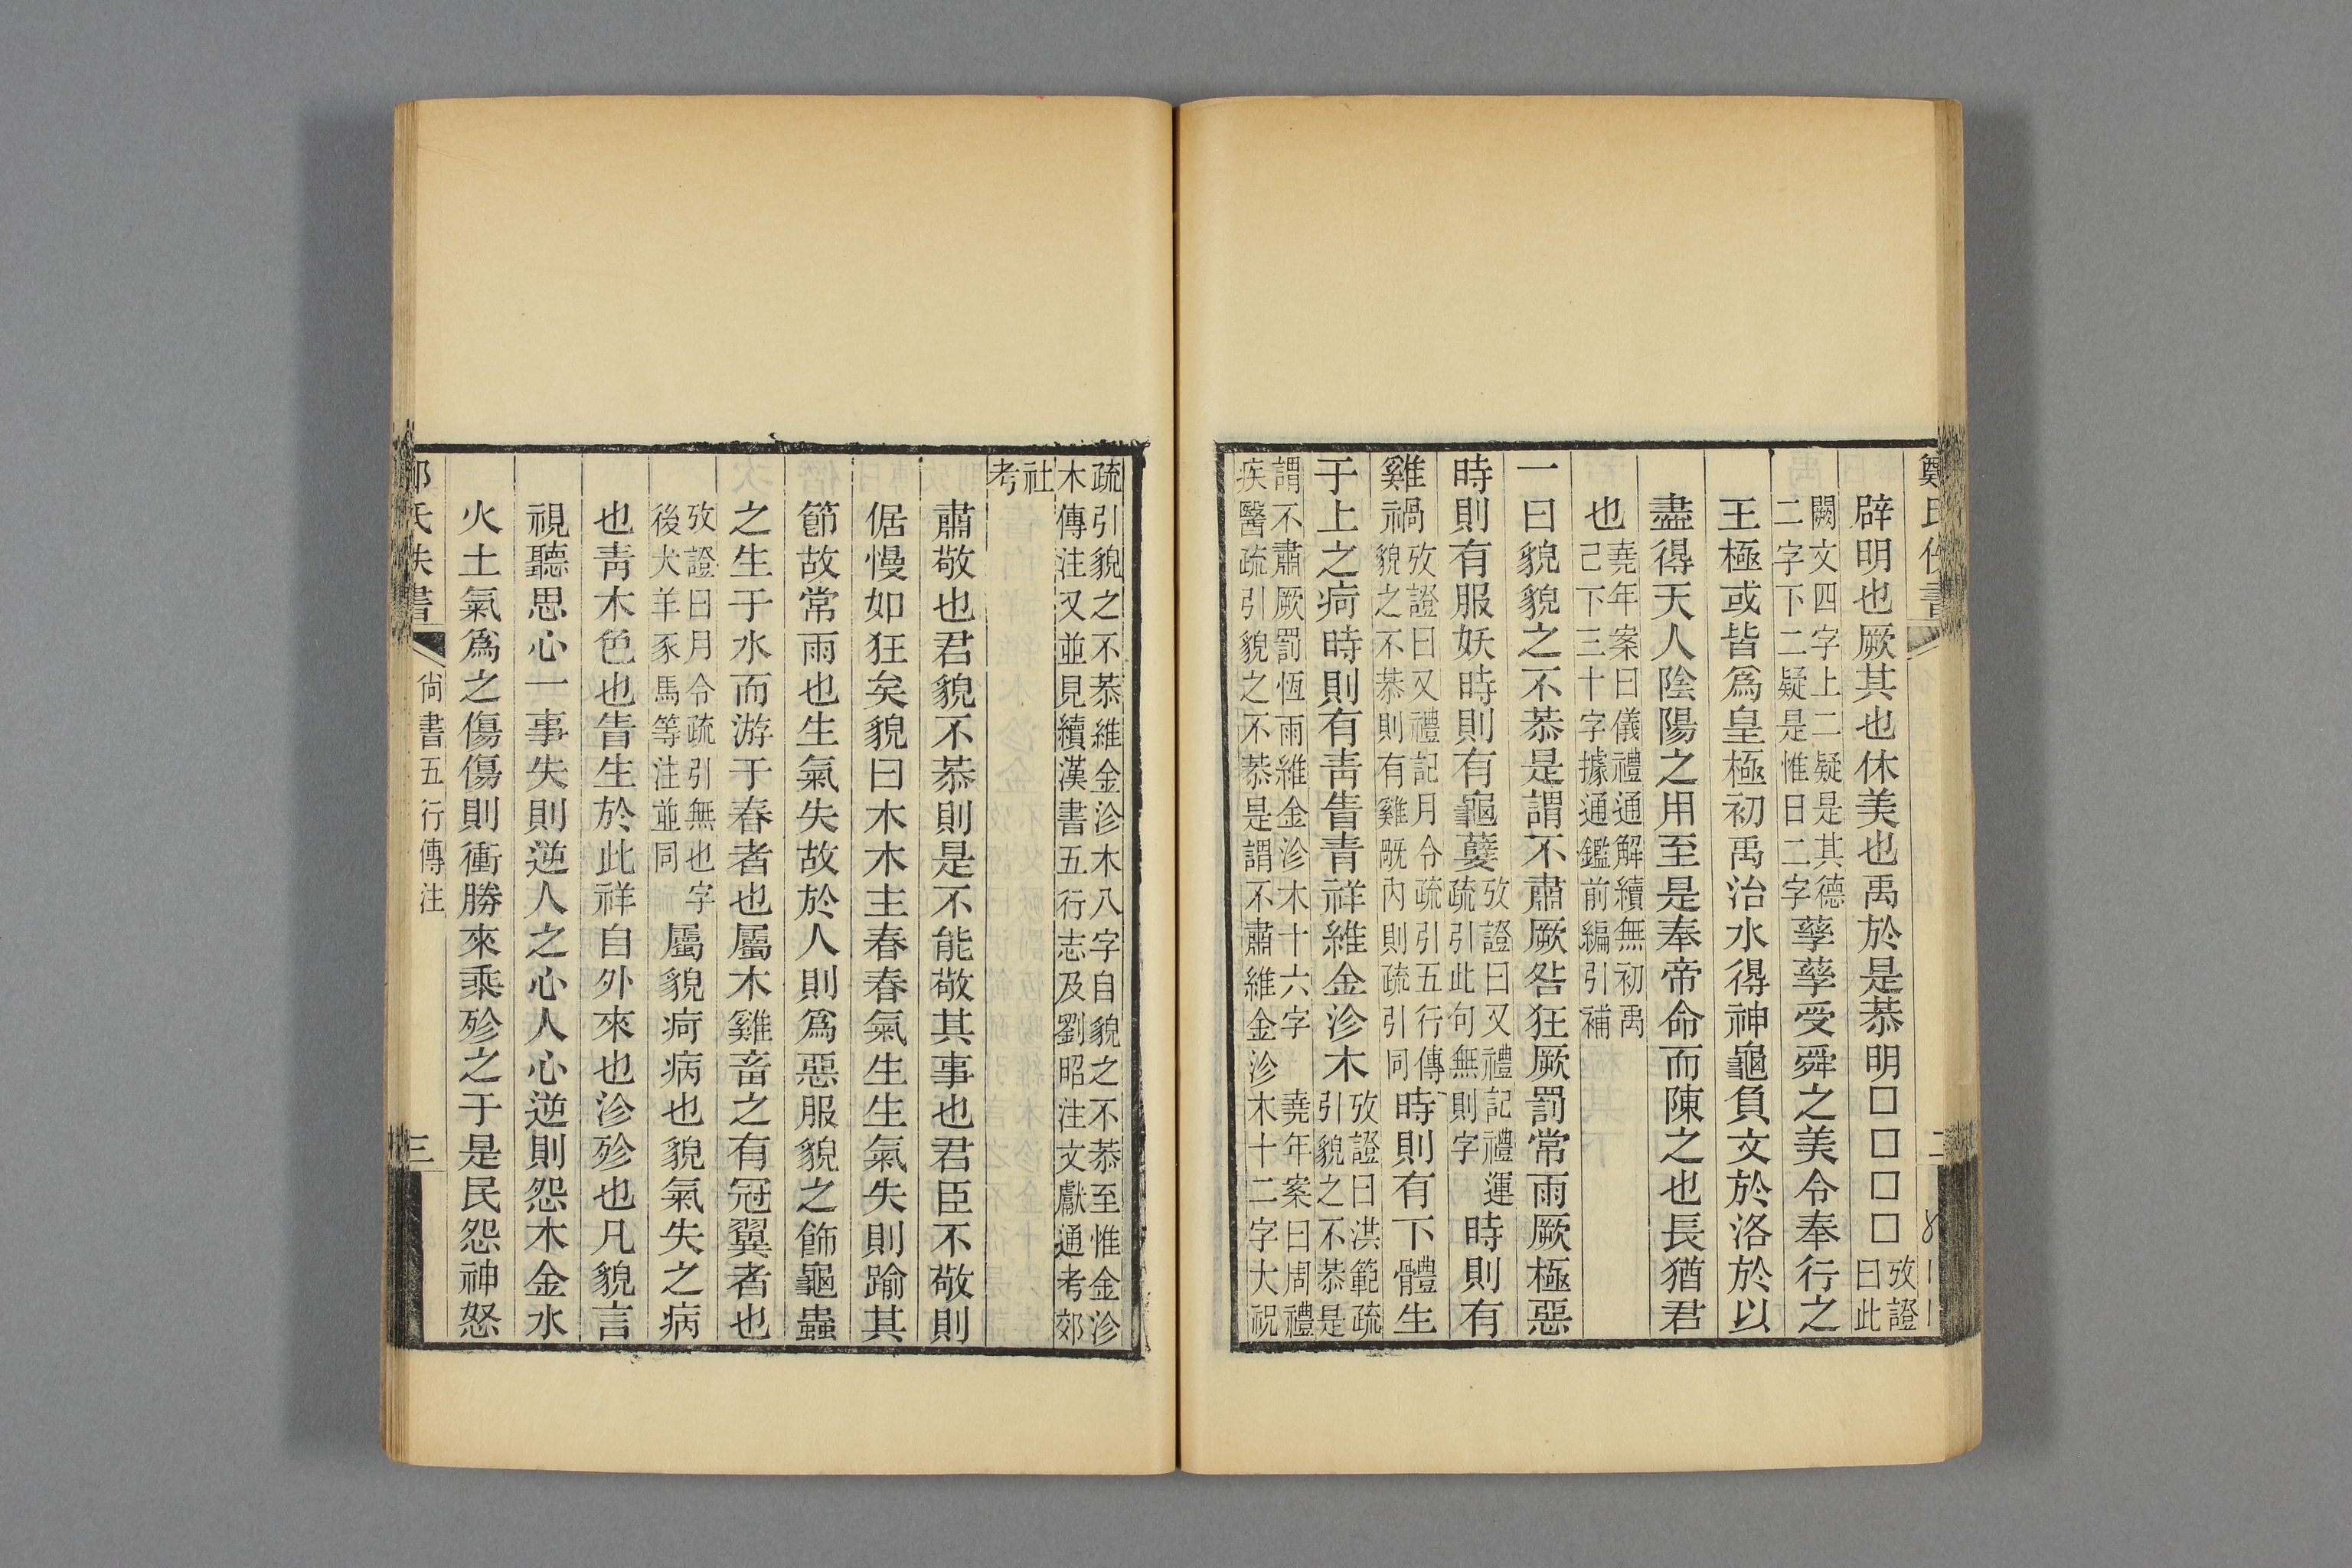 鄭氏佚書
二
辟明也厥其也休美也禹於是恭明□□□□攷證曰此
闕文四字上二疑是其德二字下二疑是惟曰二字孳孳受舜之美令奉行之
王極或皆爲皇極初禹治水得神龜負文於洛於以
盡得天人陰陽之用至是奉帝命而陳之也長猶君
也堯年案曰儀禮通解續無初禹己下三十字據通鑑前編引補
一曰貌貌之不恭是謂不肅厥咎狂厥罰常雨厥極惡
時則有服妖時則有龜孽攷證曰又禮記禮運疏引此句無則字時則有
雞禍攷證曰又禮記月令疏引五行傳貌之不恭則有雞旤內則疏引同時則有下體生
于上之痾時則有青眚青祥維金沴木攷證曰洪範疏引貌之不恭是
謂不肅厥罰恆雨維金沴木十六字堯年案曰周禮疾醫疏引貌之不恭是謂不肅維金沴木十二字大祝
疏引貌之不恭維金沴木八字自貌之不恭至惟金沴木傳注又並見續漢書五行志及劉昭注文獻通考郊
社考
肅敬也君貌不恭則是不能敬其事也君臣不敬則
倨慢如狂矣貌曰木木主春春氣生生氣失則踰其
節故常雨也生氣失故於人則爲惡服貌之飾龜蟲
之生于水而游于春者也屬木雞畜之有冠翼者也
攷證曰月令疏引無也字後犬羊豕馬等注並同屬貌痾病也貌氣失之病
也青木色也眚生於此祥自外來也沴殄也凡貌言
視聽思心一事失則逆人之心人心逆則怨木金水
火土氣爲之傷傷則衝勝來乘殄之于是民怨神怒
鄭氏佚書
尚書五行傳注
三